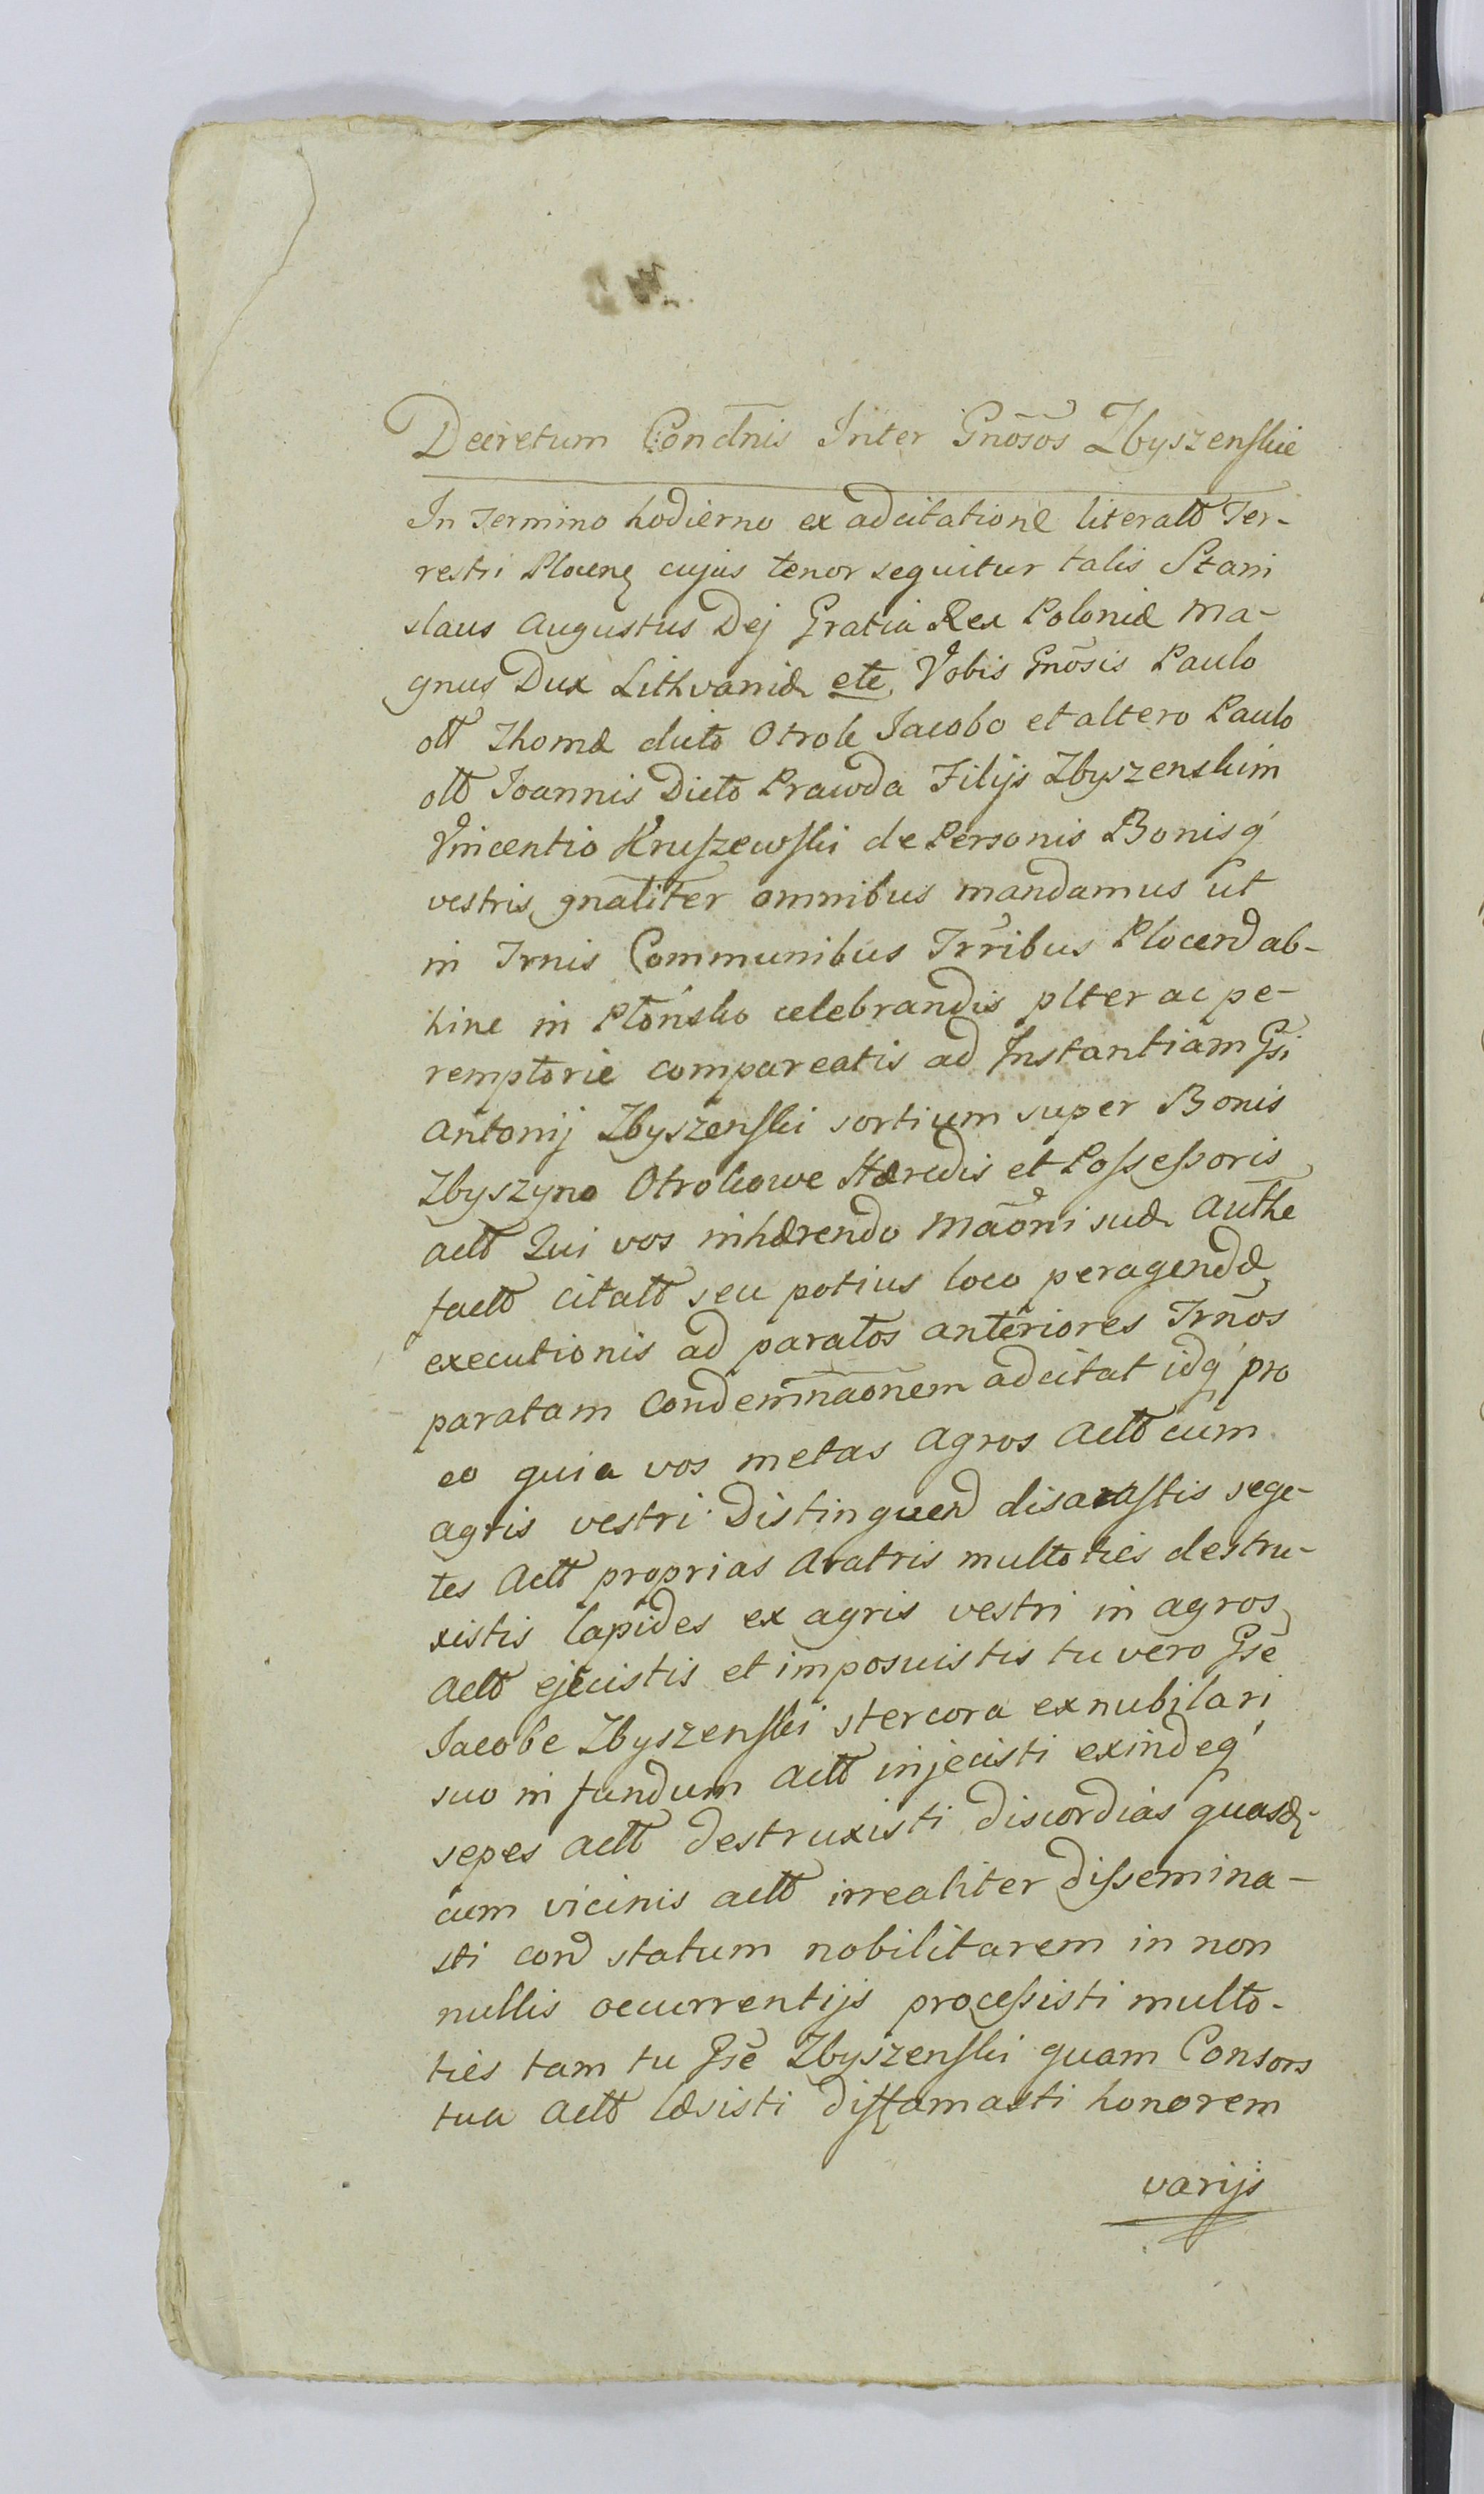 Decretum Condnis Inter Gnõsos Zbyszenskie
In Termino hodierno ex adcitatione literali Ter-
restri Plocen cujus tenor sequitur talis Stani
slaus Augustus Dej Gratia Rex Poloniæ Ma-
gnus Dux Lithvaniæ etc Vobis Gnõsis Paulo
olt Thomæ dicto Otrok Jacobo et altero Paulo
olt Joannis Dicto Prawda Filijs Zbyszenskim
Vincentio Kruszewski de Personis Bonisq
vestris gnãliter omnibus mandamus ut
in Trnis Communibus Trribus Plocend ab-
hinc in Płońsko celebrandis plter ac pe-
remptorie compareatis ad Instantiam Gsi
Antonij Zbyszenski sortium super Bonis
Zbyszyno Otrokowe Hæredis et Possessoris
actt Qui vos inhærendo mãoni suæ Authe
factt citatt seu potius loco peragendæ
executionis ad paratos anteriores Trños
paratam Condemnãonem adcitat idq pro
eo quia vos metas agros Actt cum
agris vestri Distinguend disarastis sege-
tes Actt proprias Aratris multoties destru-
xistis lapides ex agris vestri in agros
Actt ejecistis et imposuistis tu vero Gse
Jacobe Zbyszenski stercora ex nubilari
suo in fundum Actt injecisti exindeq
sepes Actt destruxisti discordias quasd
cum vicinis actt irrealiter dissemina-
sti cond statum nobilitarem in non
nullis occurrentijs processisti multo-
ties tam tu Gse Zbyszenski quam Consors
tua Actt læsisti diffamasti honorem
varijs